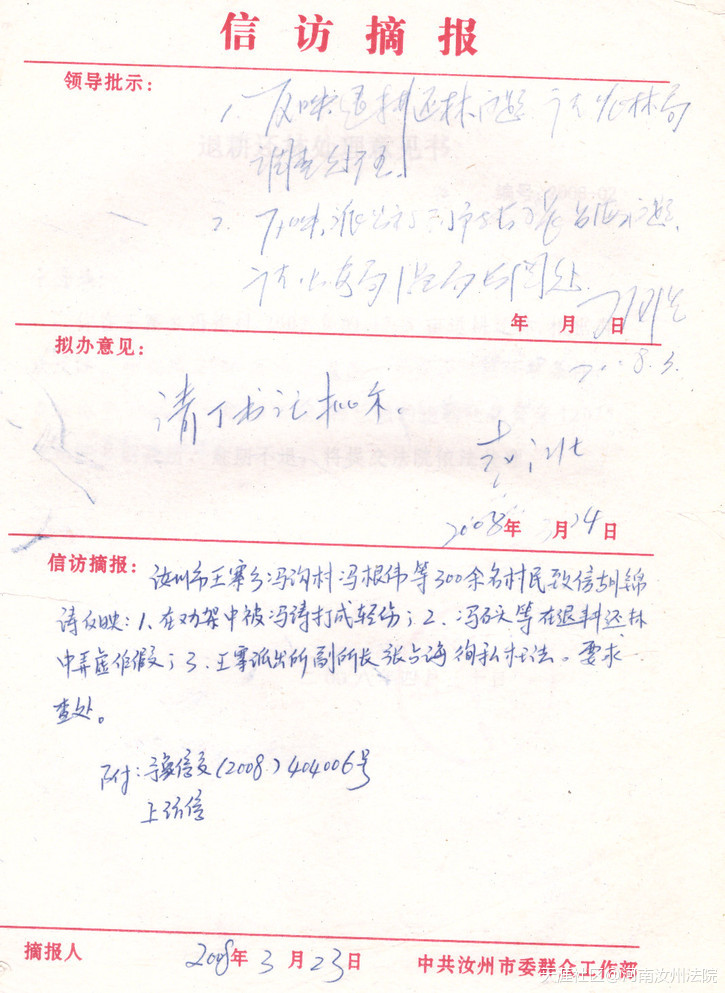 信访摘报
领导批示：
1、反映退耕还林问题，请林业局
调查处理。
2、反映派出所副所长张占海问题，
请公安局
年 月 日
拟办意见：
请丁书记批示。
2008年 3月24日
信访摘报：汝州市王寨乡冯沟村冯根伟等300余名村民致信胡锦
涛反映：1、在劝架中被冯涛打成轻伤；2、冯石夫等在退耕还林
中弄虚作假；3、王寨派出所副所长张占海徇私枉法。要求
查处。
附：豫信交(2008)404006号
上访信
摘报人 2008年 3 月 23 日 中共汝州市委群众工作部
天涯社区@河南汝州法院